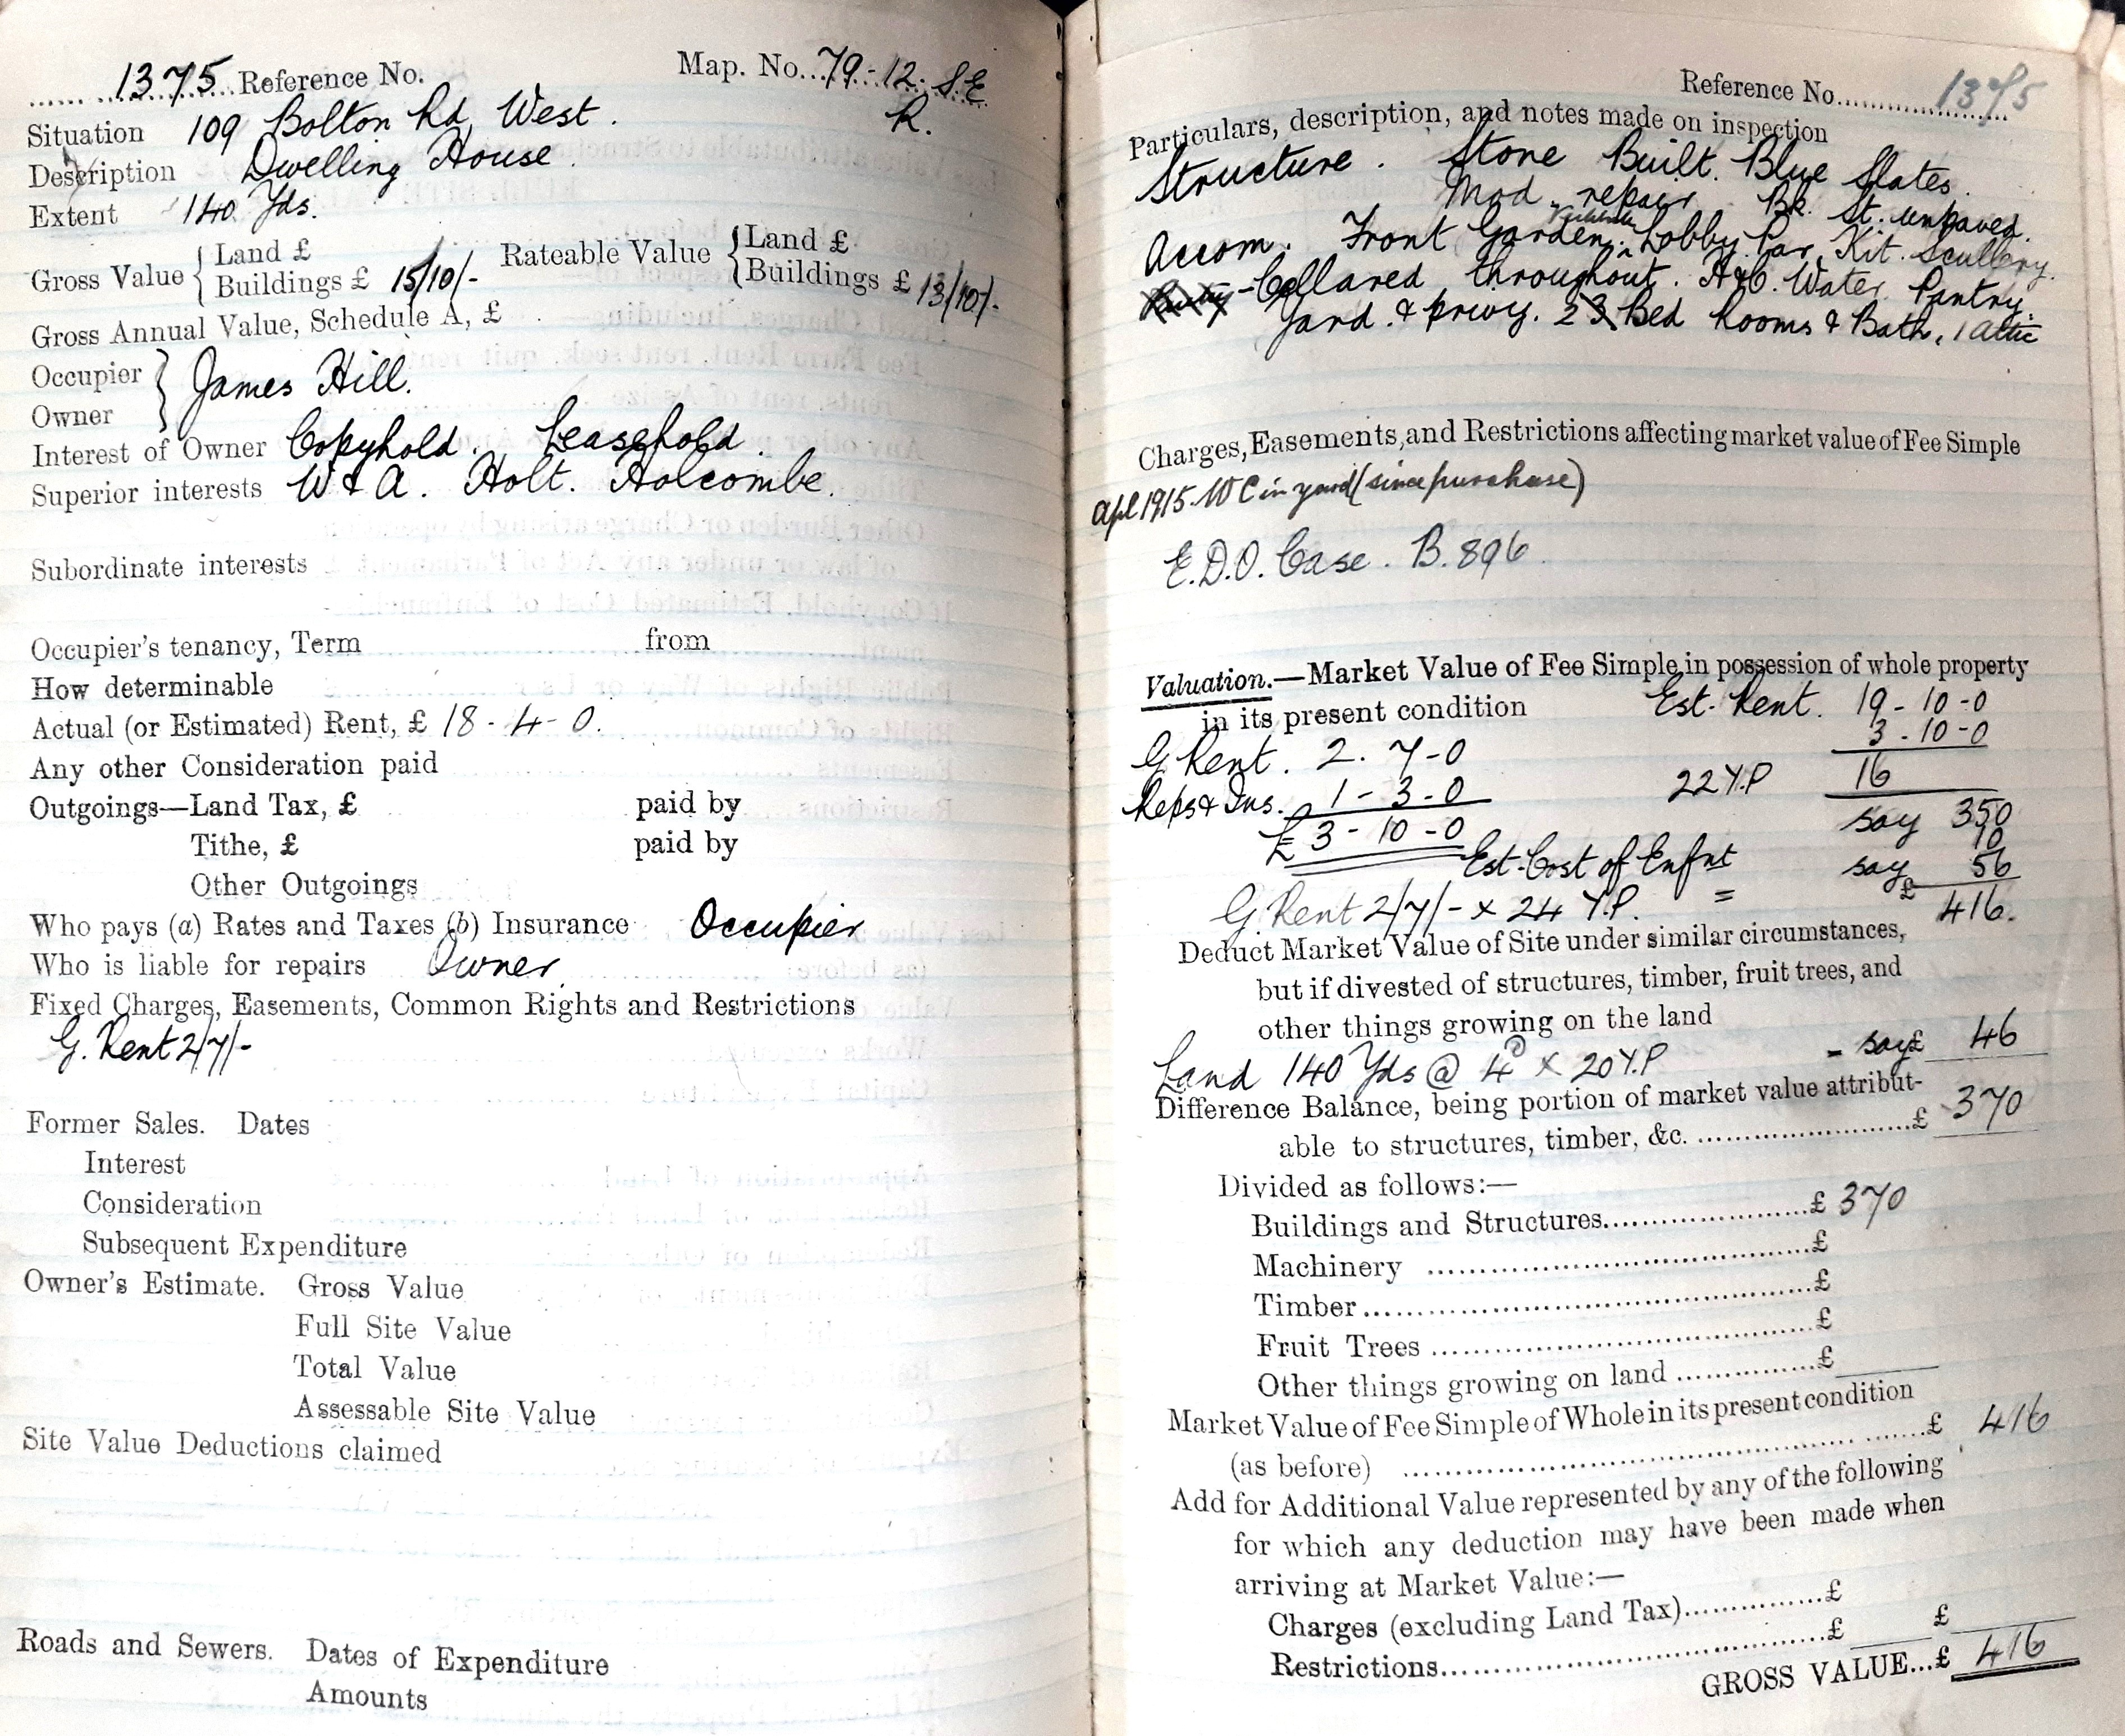 1375 Reference No. Map. No. 79-12. S.E
R.
Situation 109 Bolton Rd West.
Description Dwelling House.
Extent 140 Yds.
Gross Value { Land £
Buildings £ 15/10/-
Rateable Value { Land £
Buildings £ 13/10/-
Gross Annual Value, Schedule A, £
Occupier }
Owner } James Hill.
Interest of Owner Copyhold. Leasehold.
Superior interests W & A. Holt. Holcombe.
Subordinate interests
Occupier's tenancy, Term from
How determinable
Actual (or Estimated) Rent, £ 18-4-0.
Any other Consideration paid
Outgoings—Land Tax, £ paid by
Tithe, £ paid by
Other Outgoings
Who pays (a) Rates and Taxes (b) Insurance Occupier
Who is liable for repairs Owner
Fixed Charges, Easements, Common Rights and Restrictions
G. Rent 2/7/-
Former Sales. Dates
Interest
Consideration
Subsequent Expenditure
Owner's Estimate. Gross Value
Full Site Value
Total Value
Assessable Site Value
Site Value Deductions claimed
Roads and Sewers. Dates of Expenditure
Amounts
Reference No. 1375
Particulars, description, and notes made on inspection
Structure. Stone Built. Blue Slates.
Mod. repair Bk. St. unpaved.
Accom. Front Garden. Vestibule Lobby, Par, Kit. Scullery.
Cellared throughout. H&C. Water Pantry.
Yard. & privy. 2 3 Bed Rooms & Bath, 1 attic
Charges, Easements, and Restrictions affecting market value of Fee Simple
Apl 1915. WC in yard (since purchase)
E.D.O. Case. B.896
Valuation.—Market Value of Fee Simple in possession of whole property
in its present condition Est. Rent. 19-10-0
3-10-0
G Rent. 2. 7-0
22 Y.P 16
Reps & Ins. 1-3-0
say 350
£ 3-10-0
10
Est. Cost of Enfnt say 56
G. Rent 2/7/- x 24 Y.P. = £ 416.
Deduct Market Value of Site under similar circumstances,
but if divested of structures, timber, fruit trees, and
other things growing on the land
Land 140 Yds @ 4D x 20 Y.P - say £ 46
Difference Balance, being portion of market value attribut-
able to structures, timber, &c. £ 370
Divided as follows:—
Buildings and Structures £ 370
Machinery £
Timber £
Fruit Trees £
Other things growing on land £
Market Value of Fee Simple of Whole in its present condition
(as before) £ 416
Add for Additional Value represented by any of the following
for which any deduction may have been made when
arriving at Market Value:—
Charges (excluding Land Tax) £
Restrictions £ £
GROSS VALUE...£ 416